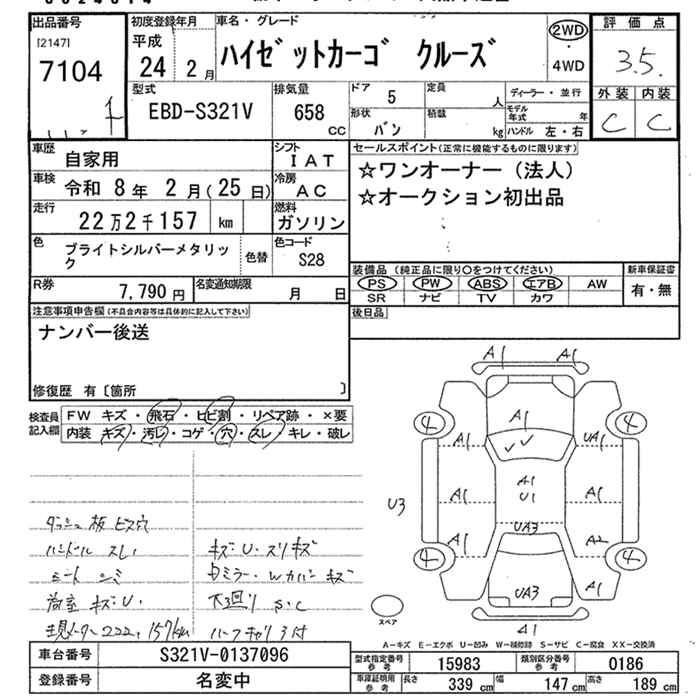 出品番号
[2147]
7104
初度登録年月
平成
24 年 2 月
車名・グレード
ハイゼットカーゴ クルーズ
2WD
・
4WD
評価点
3.5.
外装 内装
C C
型式
EBD-S321V
排気量
658 cc
ドア 5
形状 バン
定員 人
積載 kg
ディーラー・並行
モデル年式 年
ハンドル 左・右
車歴 自家用
シフト IAT
車検 令和 8年 2月(25日)
冷房 AC
走行 22万2千157 km
燃料 ガソリン
色 ブライトシルバーメタリック
色替
色コード S28
R券 7,790円
名変通知期限 月 日
セールスポイント(正常に機能するものに限ります)
☆ワンオーナー(法人)
☆オークション初出品
装備品 (純正品に限り○をつけてください)
PS PW ABS エアB AW
SR ナビ TV カワ
新車保証書
有・無
後日品
注意事項申告欄(不具合内容等は具体的に記入して下さい)
ナンバー後送
修復歴 有〔箇所 〕
検査員記入欄
FW キズ・飛石・ヒビ割・リペア跡・×要
内装 キズ・汚レ・コゲ・穴・スレ・キレ・破レ
ダッシュ板 ビス穴
ハンドル スレ
シート シミ
荷室 キズ・U・
メーター222,157km
キズ・U・スリキズ
ミラー・Wカバーキズ
下廻り S・C
A1 A1
4 A1 4
A1 UA1
U3 A1 A1 U1 A1
UA3
A1 A2
4 4
UA3 A1
A1
スペア
A-キズ E-エクボ U-凹み W-補修跡 S-サビ C-腐食 XX-交換済
車台番号 S321V-0137096
登録番号 名変中
型式指定番号 参考 15983
類別区分番号 参考 0186
車庫証明用 参考
長さ 339 cm 幅 147 cm 高さ 189 cm